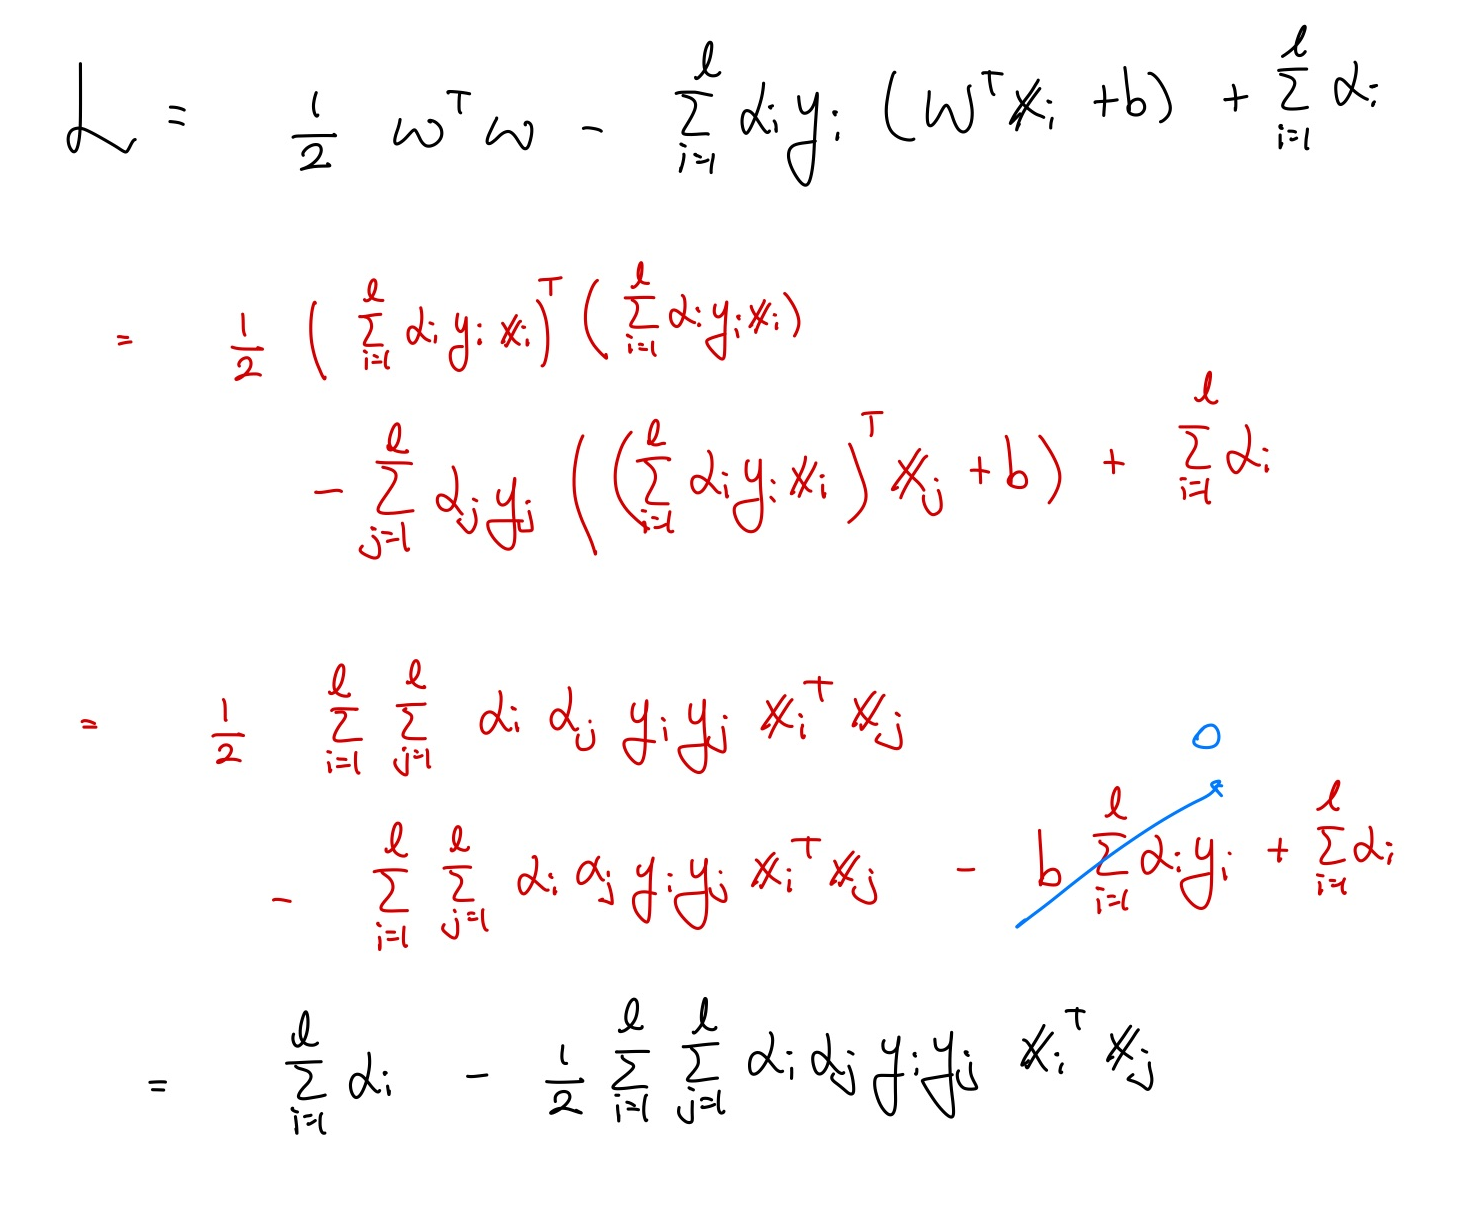 L = 1/2 w^T w - Σ_{i=1}^{l} α_i y_i (w^T x_i + b) + Σ_{i=1}^{l} α_i
= 1/2 ( Σ_{i=1}^{l} α_i y_i x_i )^T ( Σ_{i=1}^{l} α_i y_i x_i )
- Σ_{j=1}^{l} α_j y_j ( ( Σ_{i=1}^{l} α_i y_i x_i )^T x_j + b ) + Σ_{i=1}^{l} α_i
= 1/2 Σ_{i=1}^{l} Σ_{j=1}^{l} α_i α_j y_i y_j x_i^T x_j
0
- Σ_{i=1}^{l} Σ_{j=1}^{l} α_i α_j y_i y_j x_i^T x_j - b Σ_{i=1}^{l} α_i y_i + Σ_{i=1}^{l} α_i
= Σ_{i=1}^{l} α_i - 1/2 Σ_{i=1}^{l} Σ_{j=1}^{l} α_i α_j y_i y_j x_i^T x_j